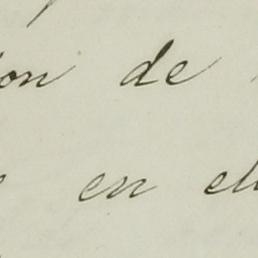 ion de
en el